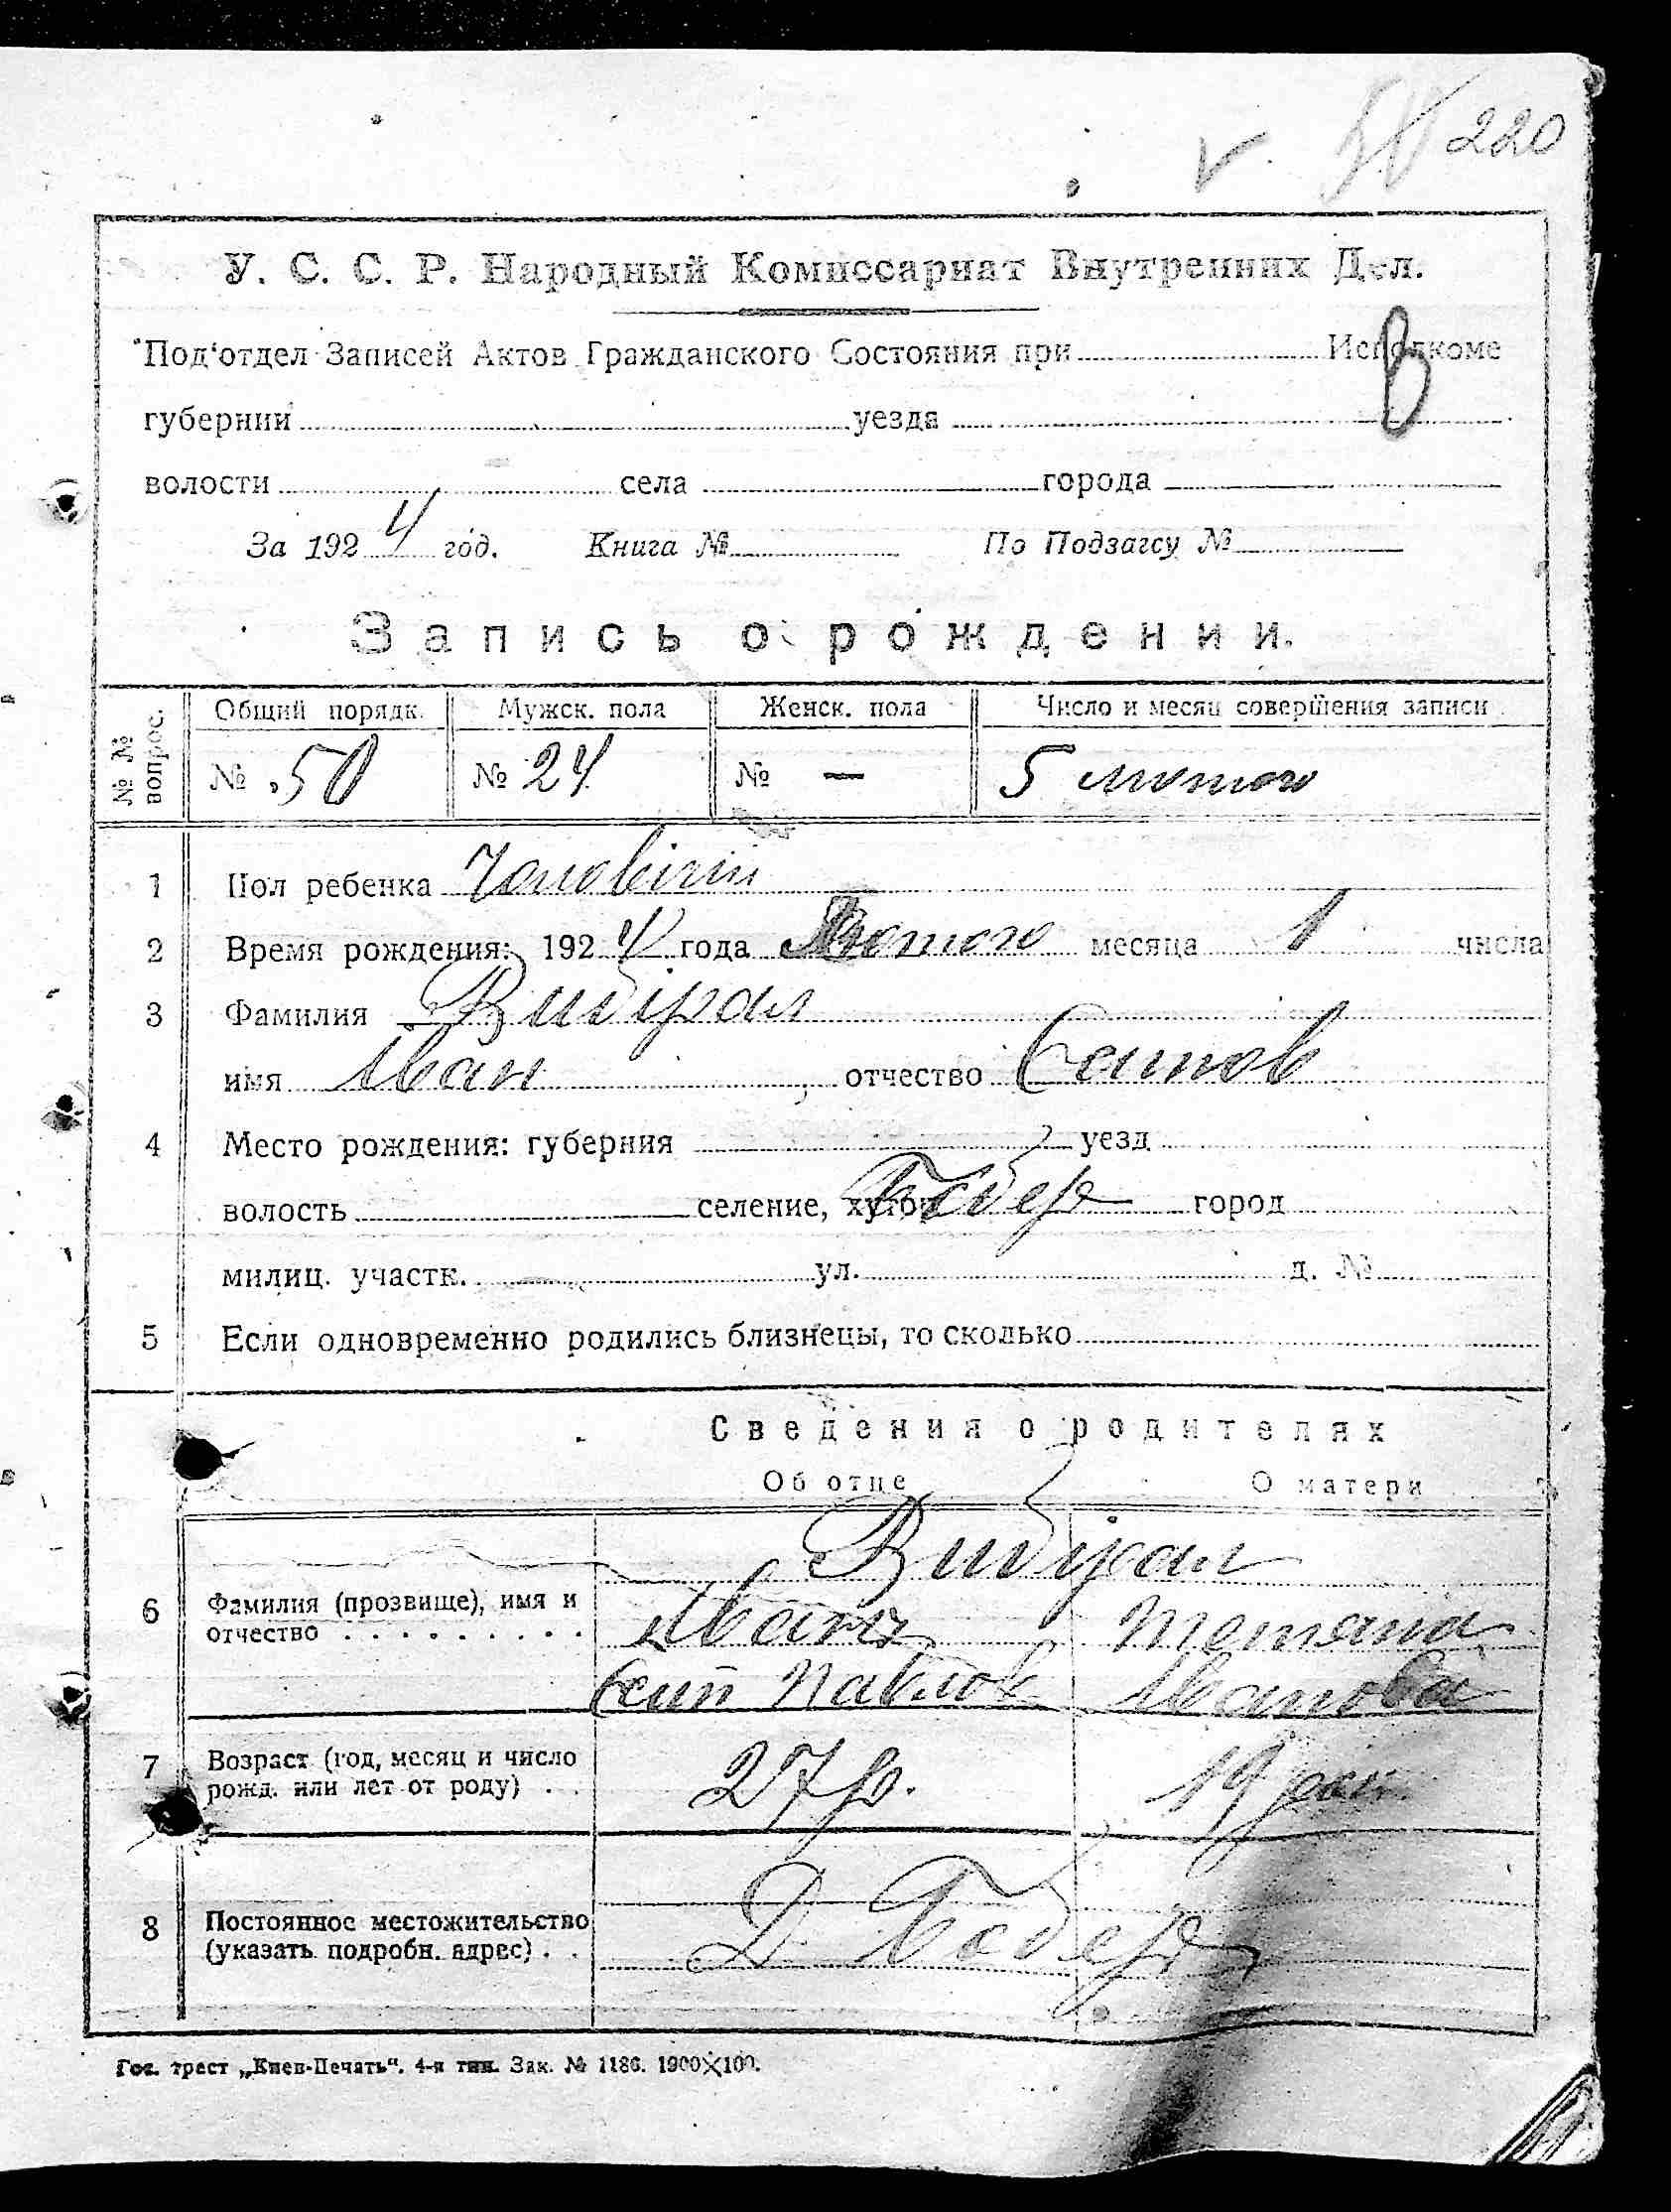 220
У. С. С. Р. Народный Комиссариат Внутренних Дел.
Под'отдел Записей Актов Гражданского Состояния при Исполкоме
В
губернии уезда
волости села города
За 1924 год. Книга № По Подзагсу №
Запись о рождении.
№ № вопрос.
Общий порядк. Мужск. пола Женск. пола Число и месяц совершения записи
№ 50 № 24 № — 5 лютого
1 Пол ребенка Чоловічий
2 Время рождения: 1924 года Лютого месяца 1 числа
3 Фамилия Видірал
имя Іван, отчество Єсипов
4 Место рождения: губерния уезд
волость селение, хутор Бобер город
милиц. участк. ул. д. №
5 Если одновременно родились близнецы, то сколько
Сведения о родителях
Об отце О матери
Видірал
6 Фамилия (прозвище), имя и отчество
Тетяна
Єсип Павлов Іванова
7 Возраст (год, месяц и число рожд. или лет от роду)
27 р. 19 рок.
8 Постоянное местожительство (указать подробн. адрес)
Д Бобер
Гос. трест „Киев-Печать“. 4-я тип. Зак. № 1186. 1900×100.